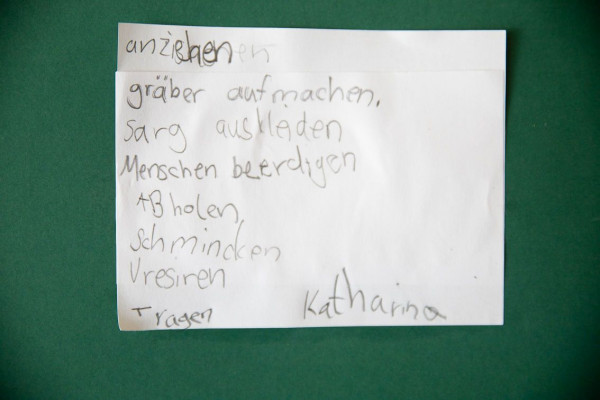 anziehen
gräber aufmachen.
Sarg auskleiden
Menschen beerdigen
ABholen,
Schmincken
Vresiren
Tragen Katharina